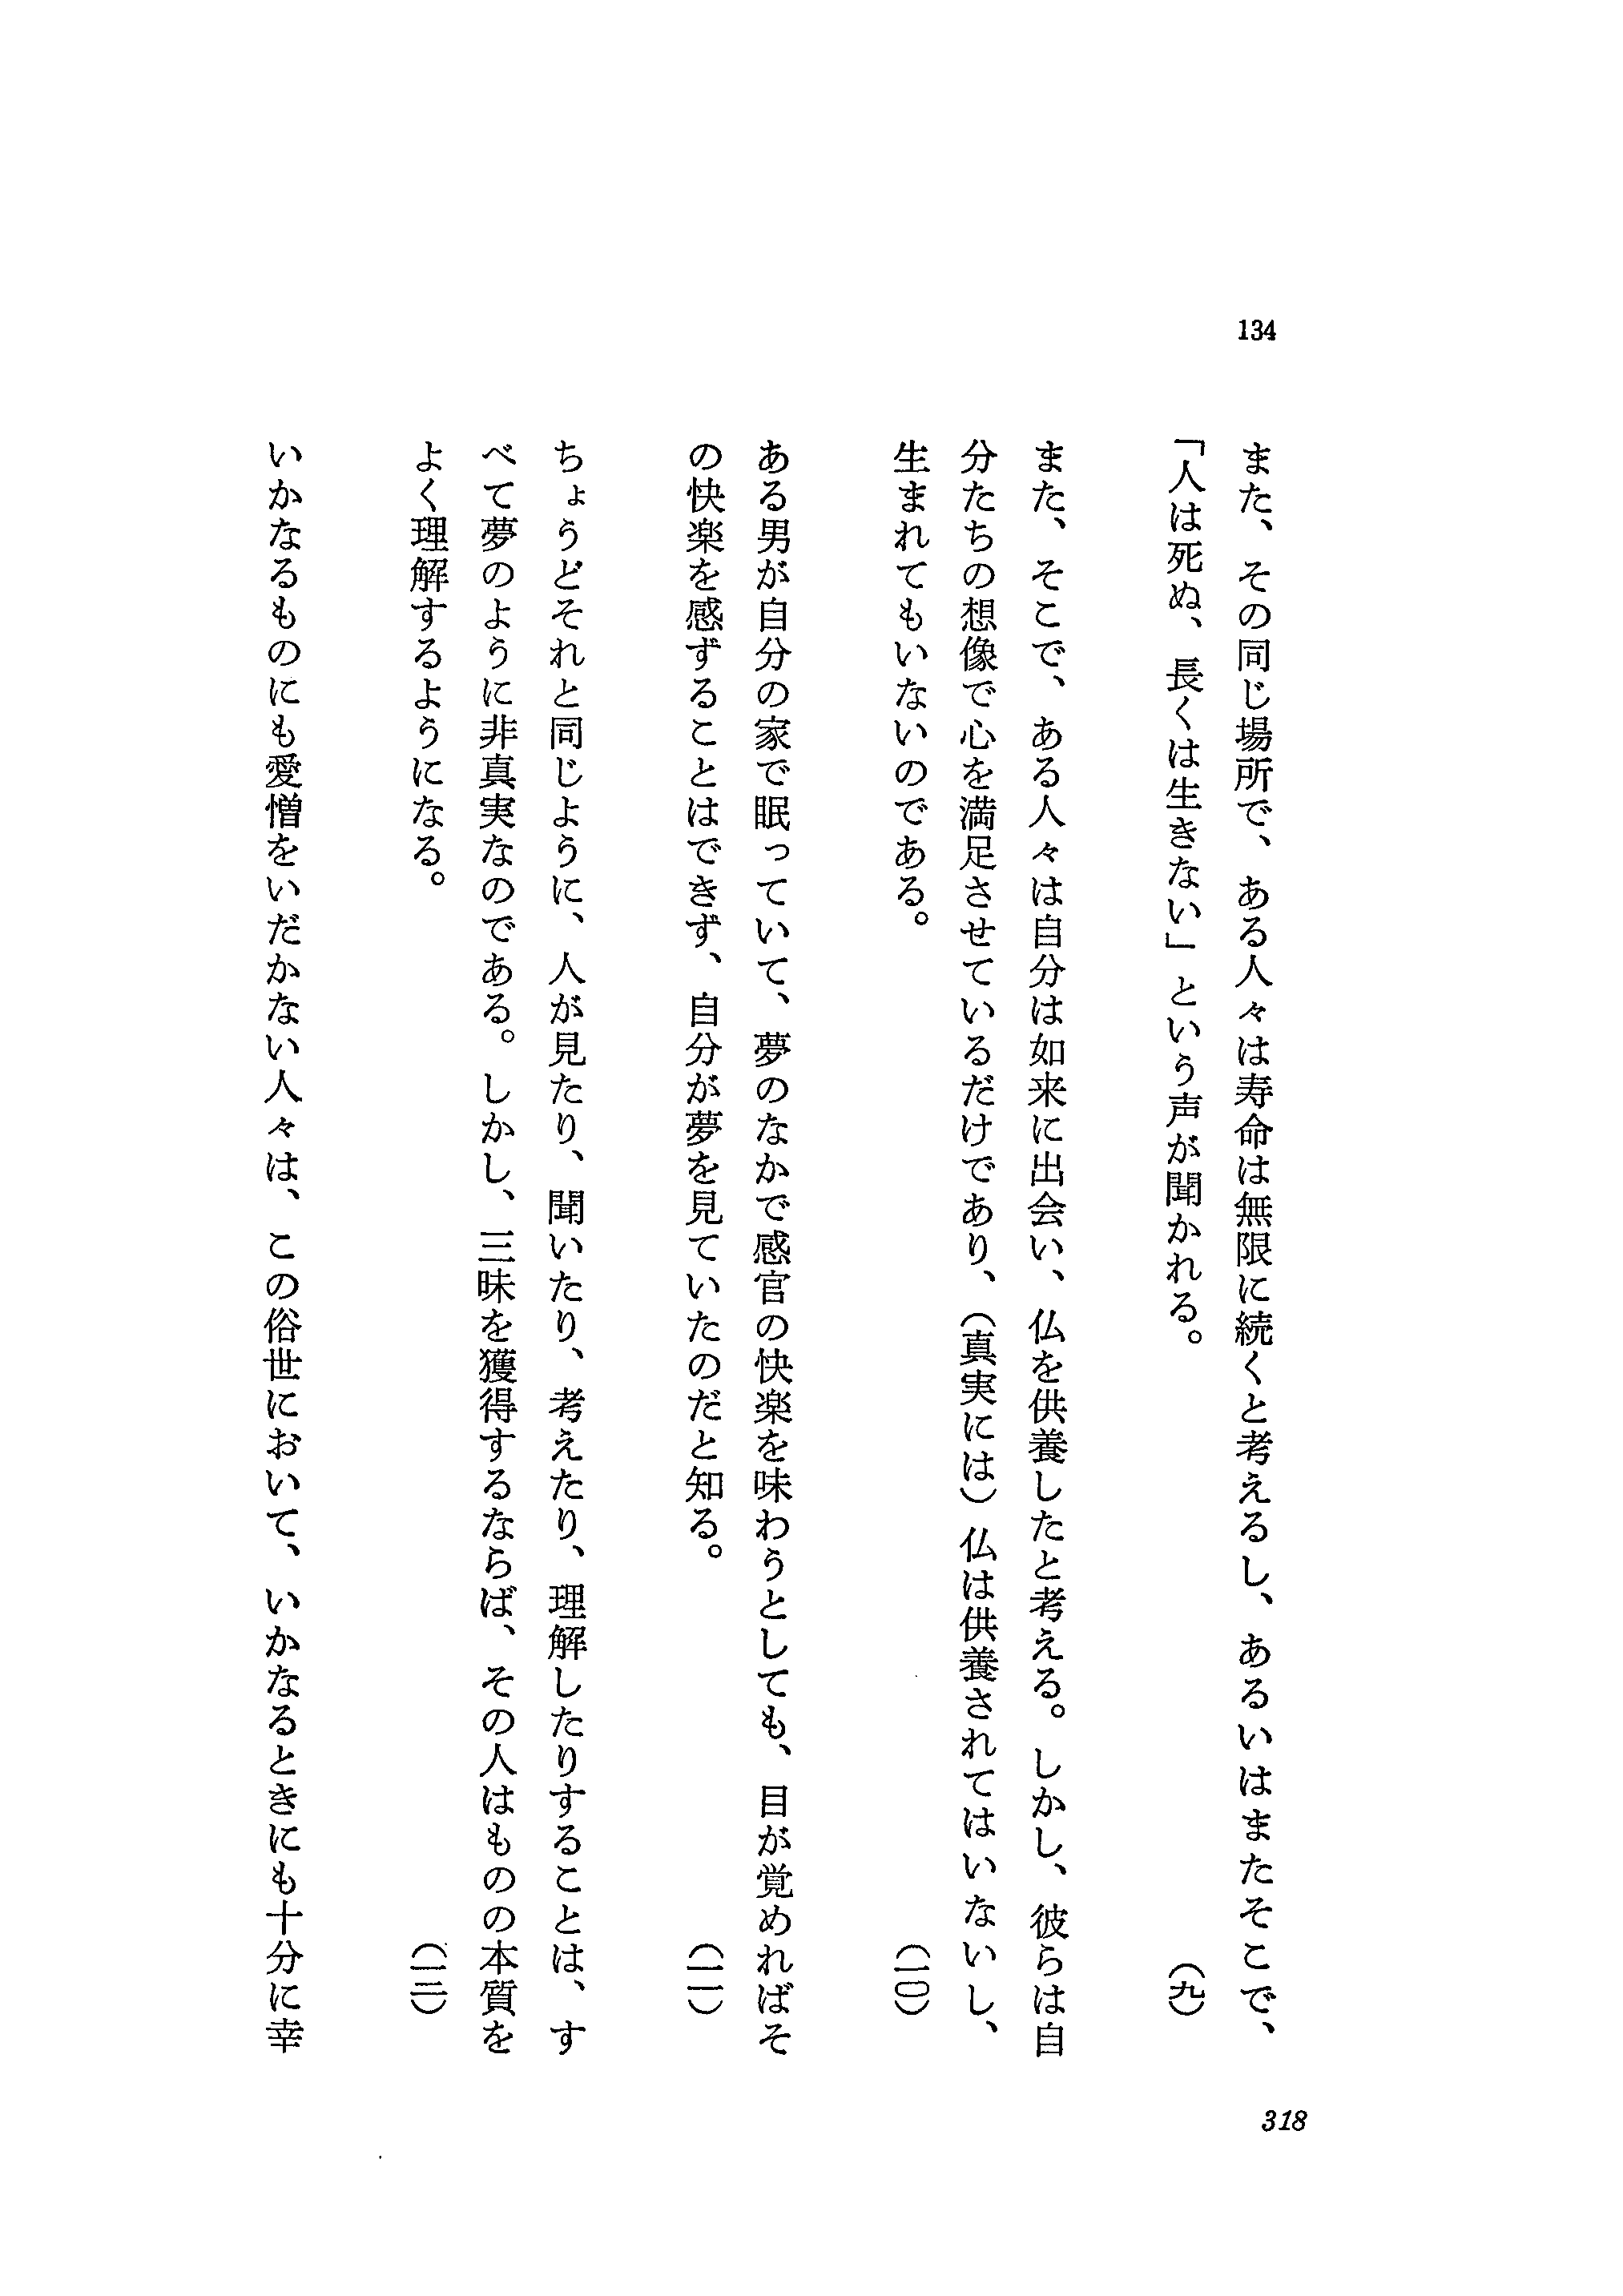 134
また、その同じ場所で、ある人々は寿命は無限に続くと考えるし、あるいはまたそこで、
「人は死ぬ、長くは生きない」という声が聞かれる。（九）
また、そこで、ある人々は自分は如来に出会い、仏を供養したと考える。しかし、彼らは自
分たちの想像で心を満足させているだけであり、（真実には）仏は供養されてはいないし、
生まれてもいないのである。（一〇）
ある男が自分の家で眠っていて、夢のなかで感官の快楽を味わうとしても、目が覚めればそ
の快楽を感ずることはできず、自分が夢を見ていたのだと知る。（一一）
ちょうどそれと同じように、人が見たり、聞いたり、考えたり、理解したりすることは、す
べて夢のように非真実なのである。しかし、三昧を獲得するならば、その人はものの本質を
よく理解するようになる。（一二）
いかなるものにも愛憎をいだかない人々は、この俗世において、いかなるときにも十分に幸
318